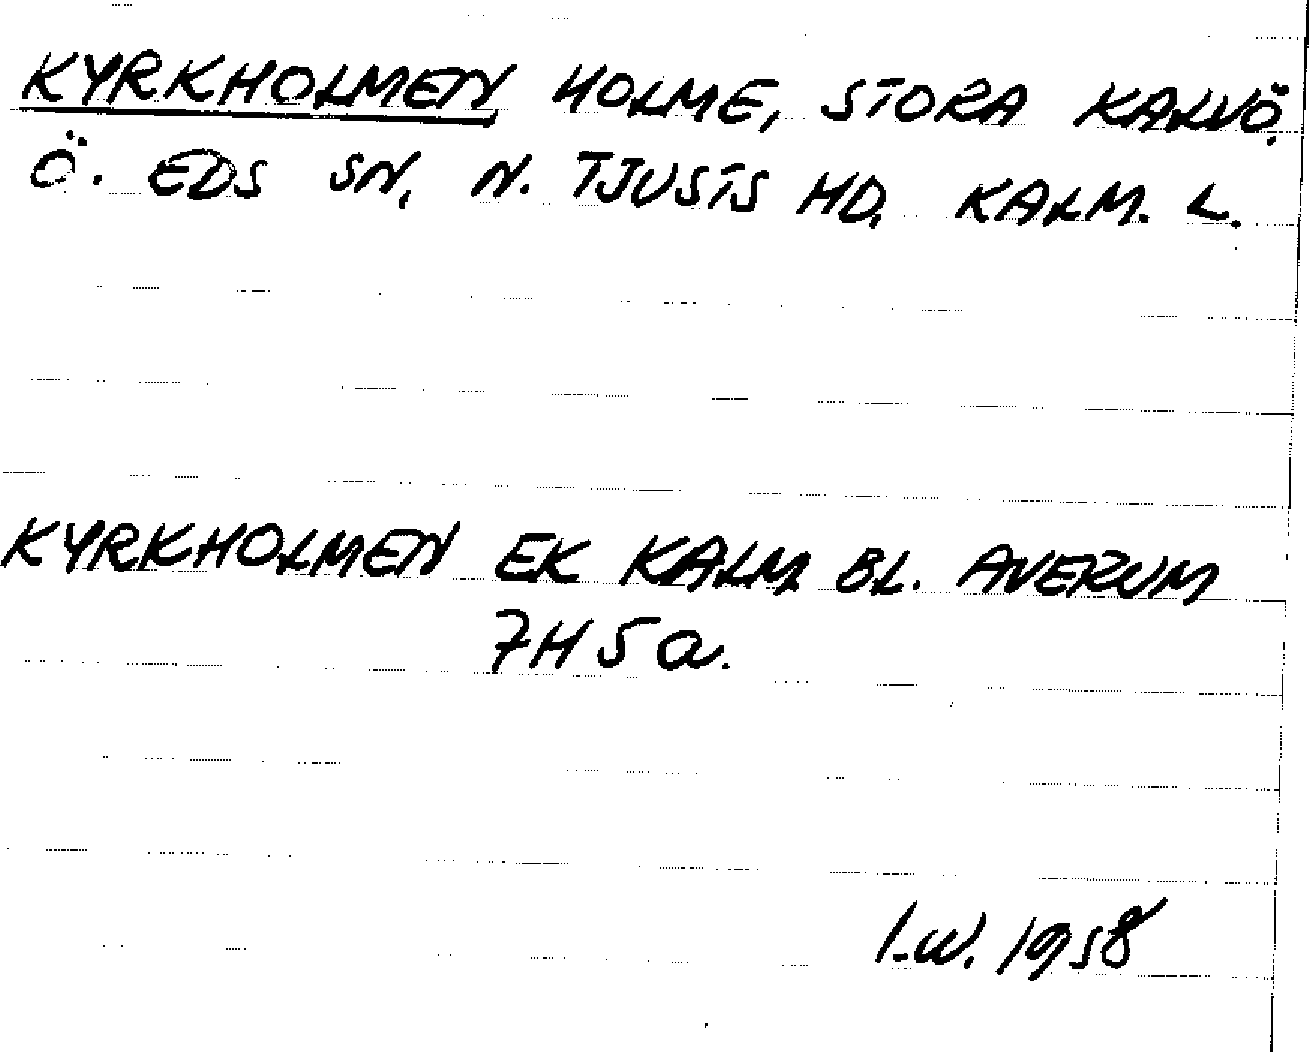 KYRKHOLMEN HOLME, STORA KALVÖ,
Ö. EDS SN, N. TJUSTS HD, KALM. L.
KYRKHOLMEN EK KALM BL. AVERUM
7H 5a.
I.W. 1958